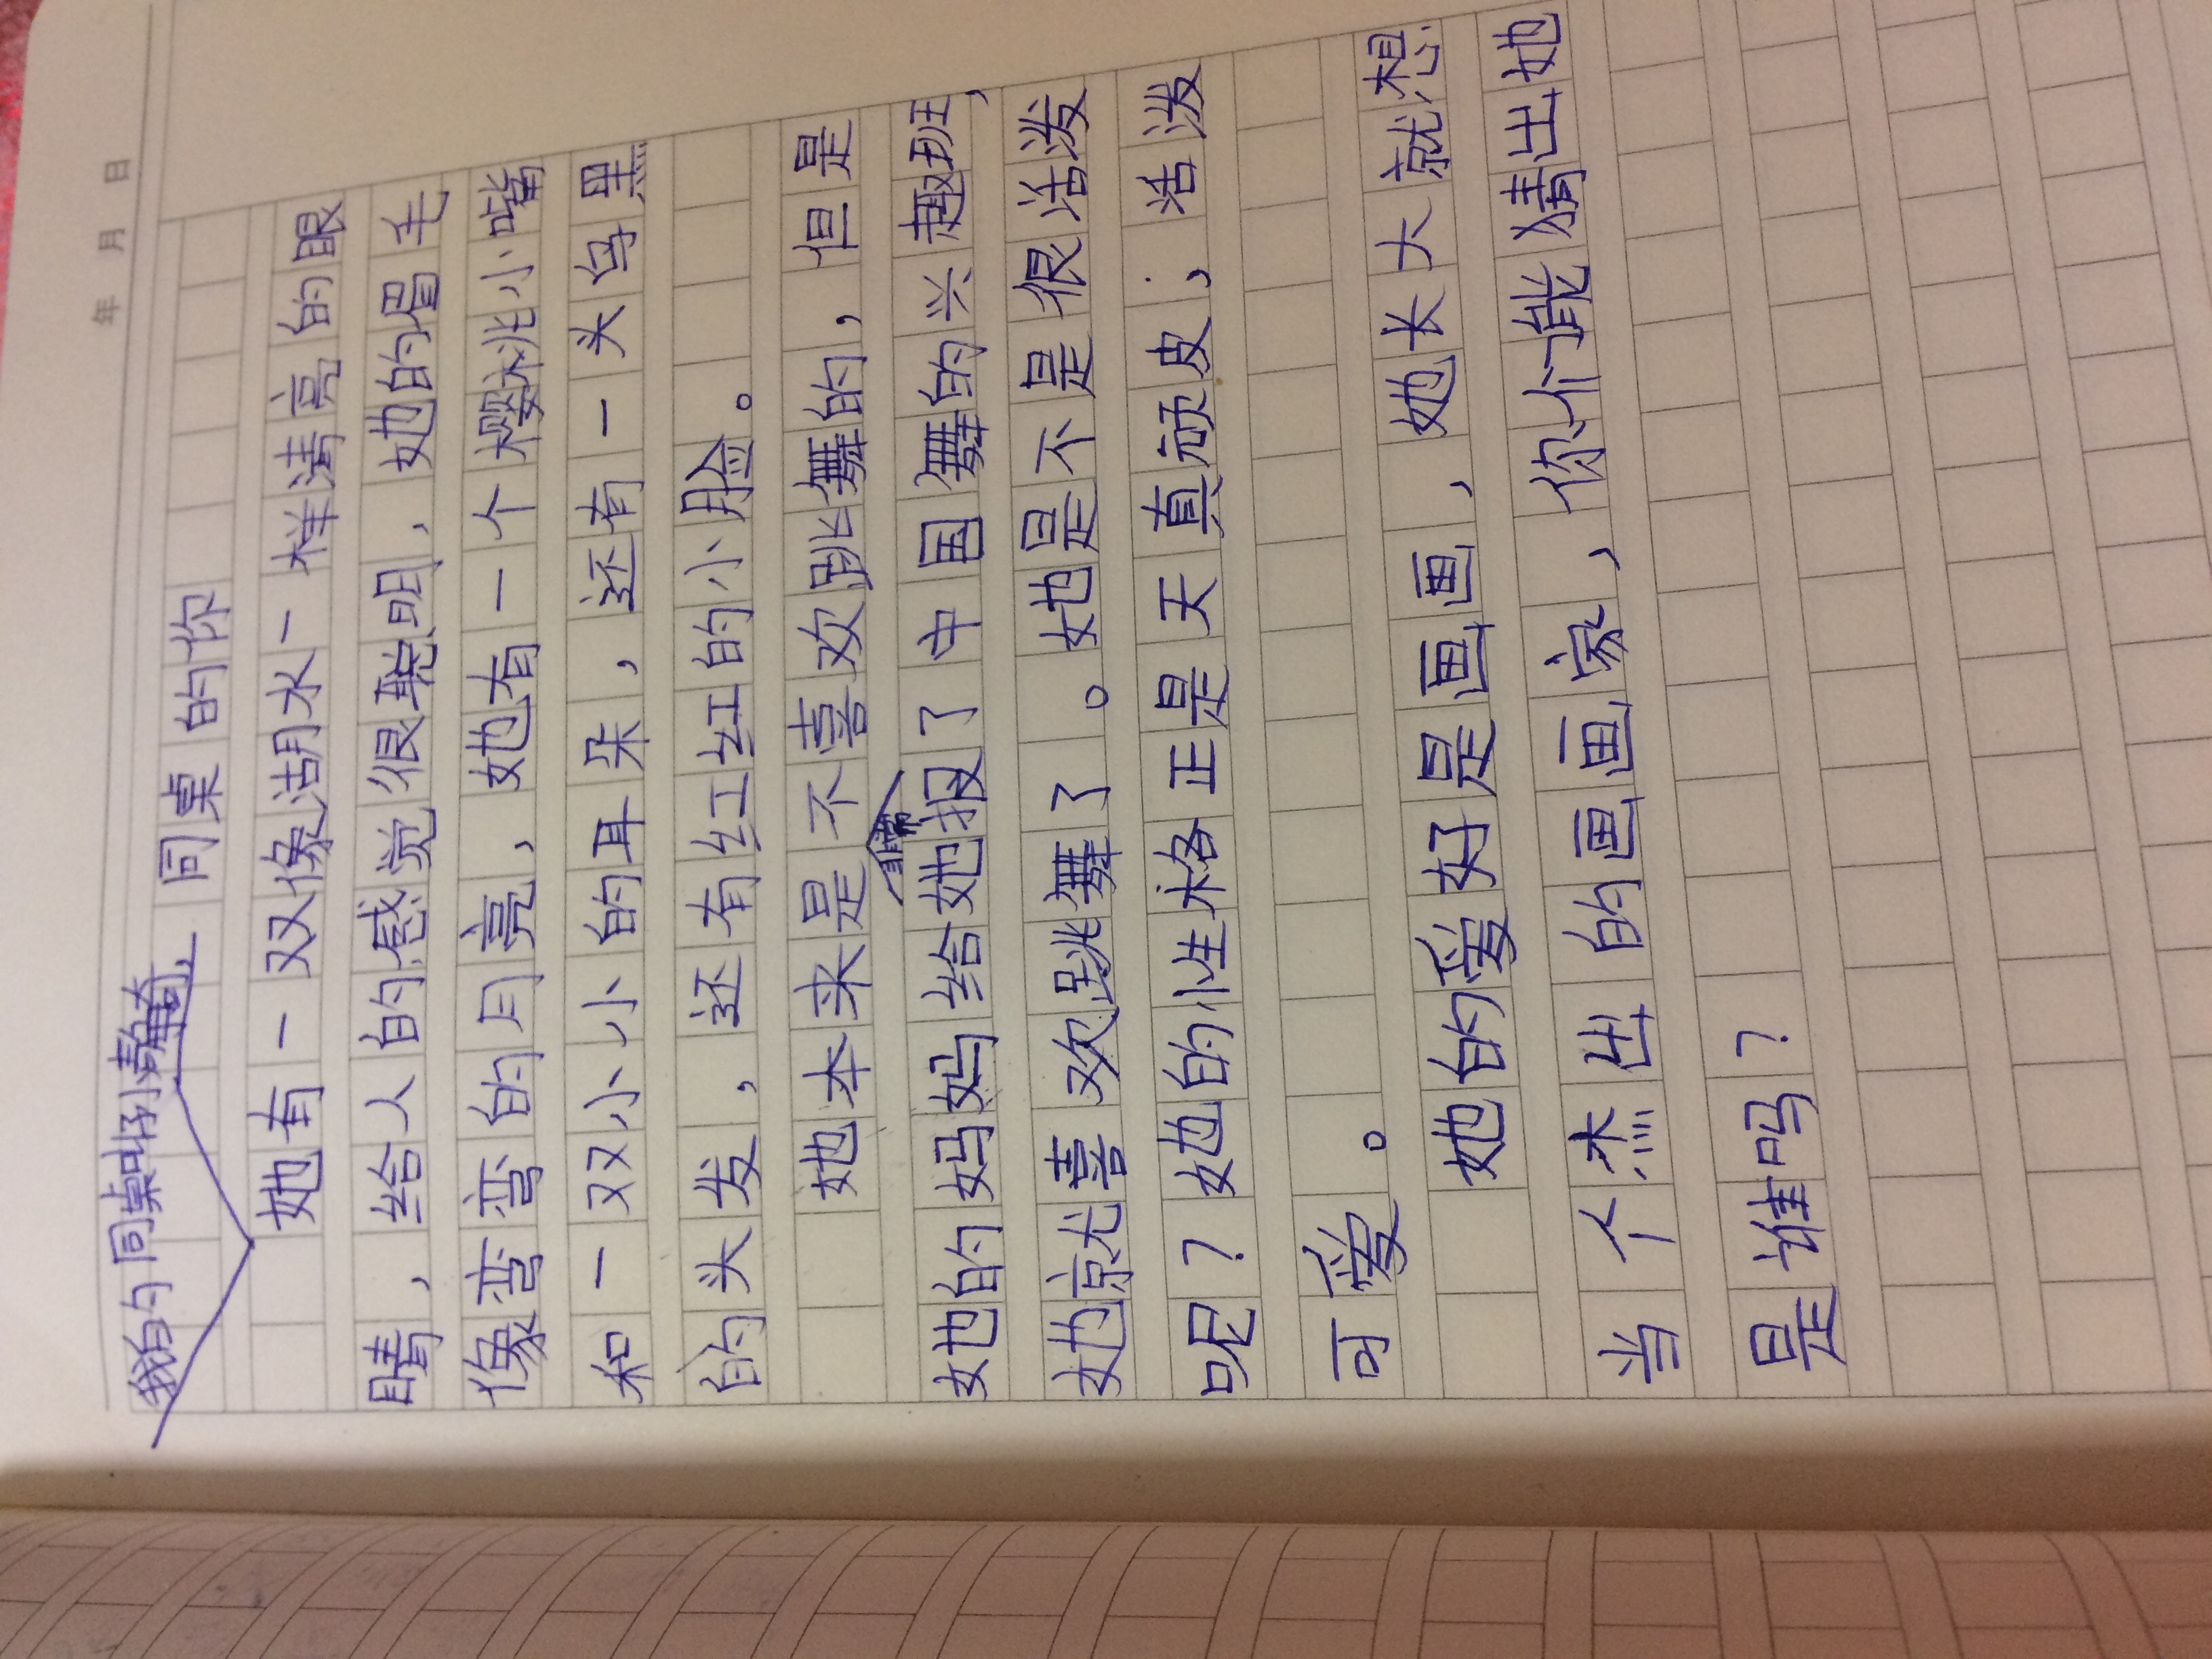 年 月 日
我的同桌叫小静奇,
同桌的你
她有一双像湖水一样清亮的眼
睛,给人的感觉很聪明,她的眉毛
像弯弯的月亮,她有一个樱桃小嘴
和一双小小的耳朵,还有一头乌黑
的头发,还有红红的小脸。
她本来是不喜欢跳舞的,但是
她的妈妈给她报了中国舞的兴趣班,
她就喜欢跳舞了。她是不是很活泼
呢?她的性格正是天真顽皮;活泼
可爱。
她的爱好是画画,她长大就想
当个杰出的画画家,你们能猜出她
是谁吗?